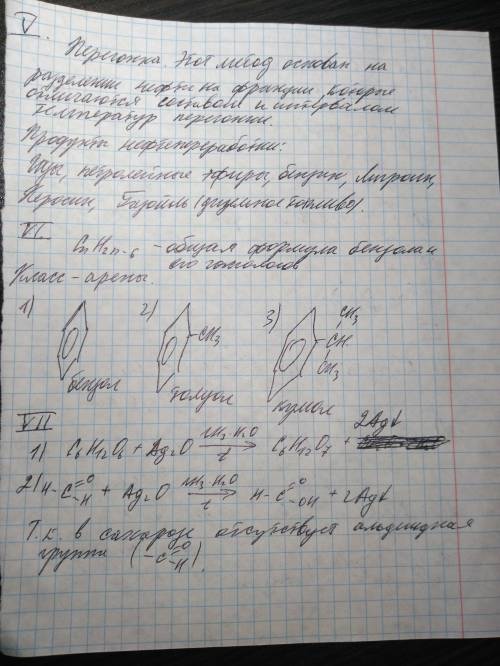 V.
Перегонка. Этот метод основан на
разделении нефти на фракции, которые
отличаются составом и интервалом
температур перегонки.
Продукты нефтепереработки:
Газы, петролейные эфиры, бензин, Лигроин,
Керосин, Газойль (дизельное топливо).
VI.
CnH2n-6 - общая формула бензола и
его гомологов
Класс - арены.
1) 2) 3)
CH3
CH3 CH
CH3
бензол толуол кумол
VII
1) C6H12O6 + Ag2O NH3 H2O → t C6H12O7 + 2Ag↓
2) H-C=O -H + Ag2O NH3 H2O → t H-C=O -OH + 2Ag↓
Т.к. в сахарозе отсутствует альдегидная
группа (-C=O -H).